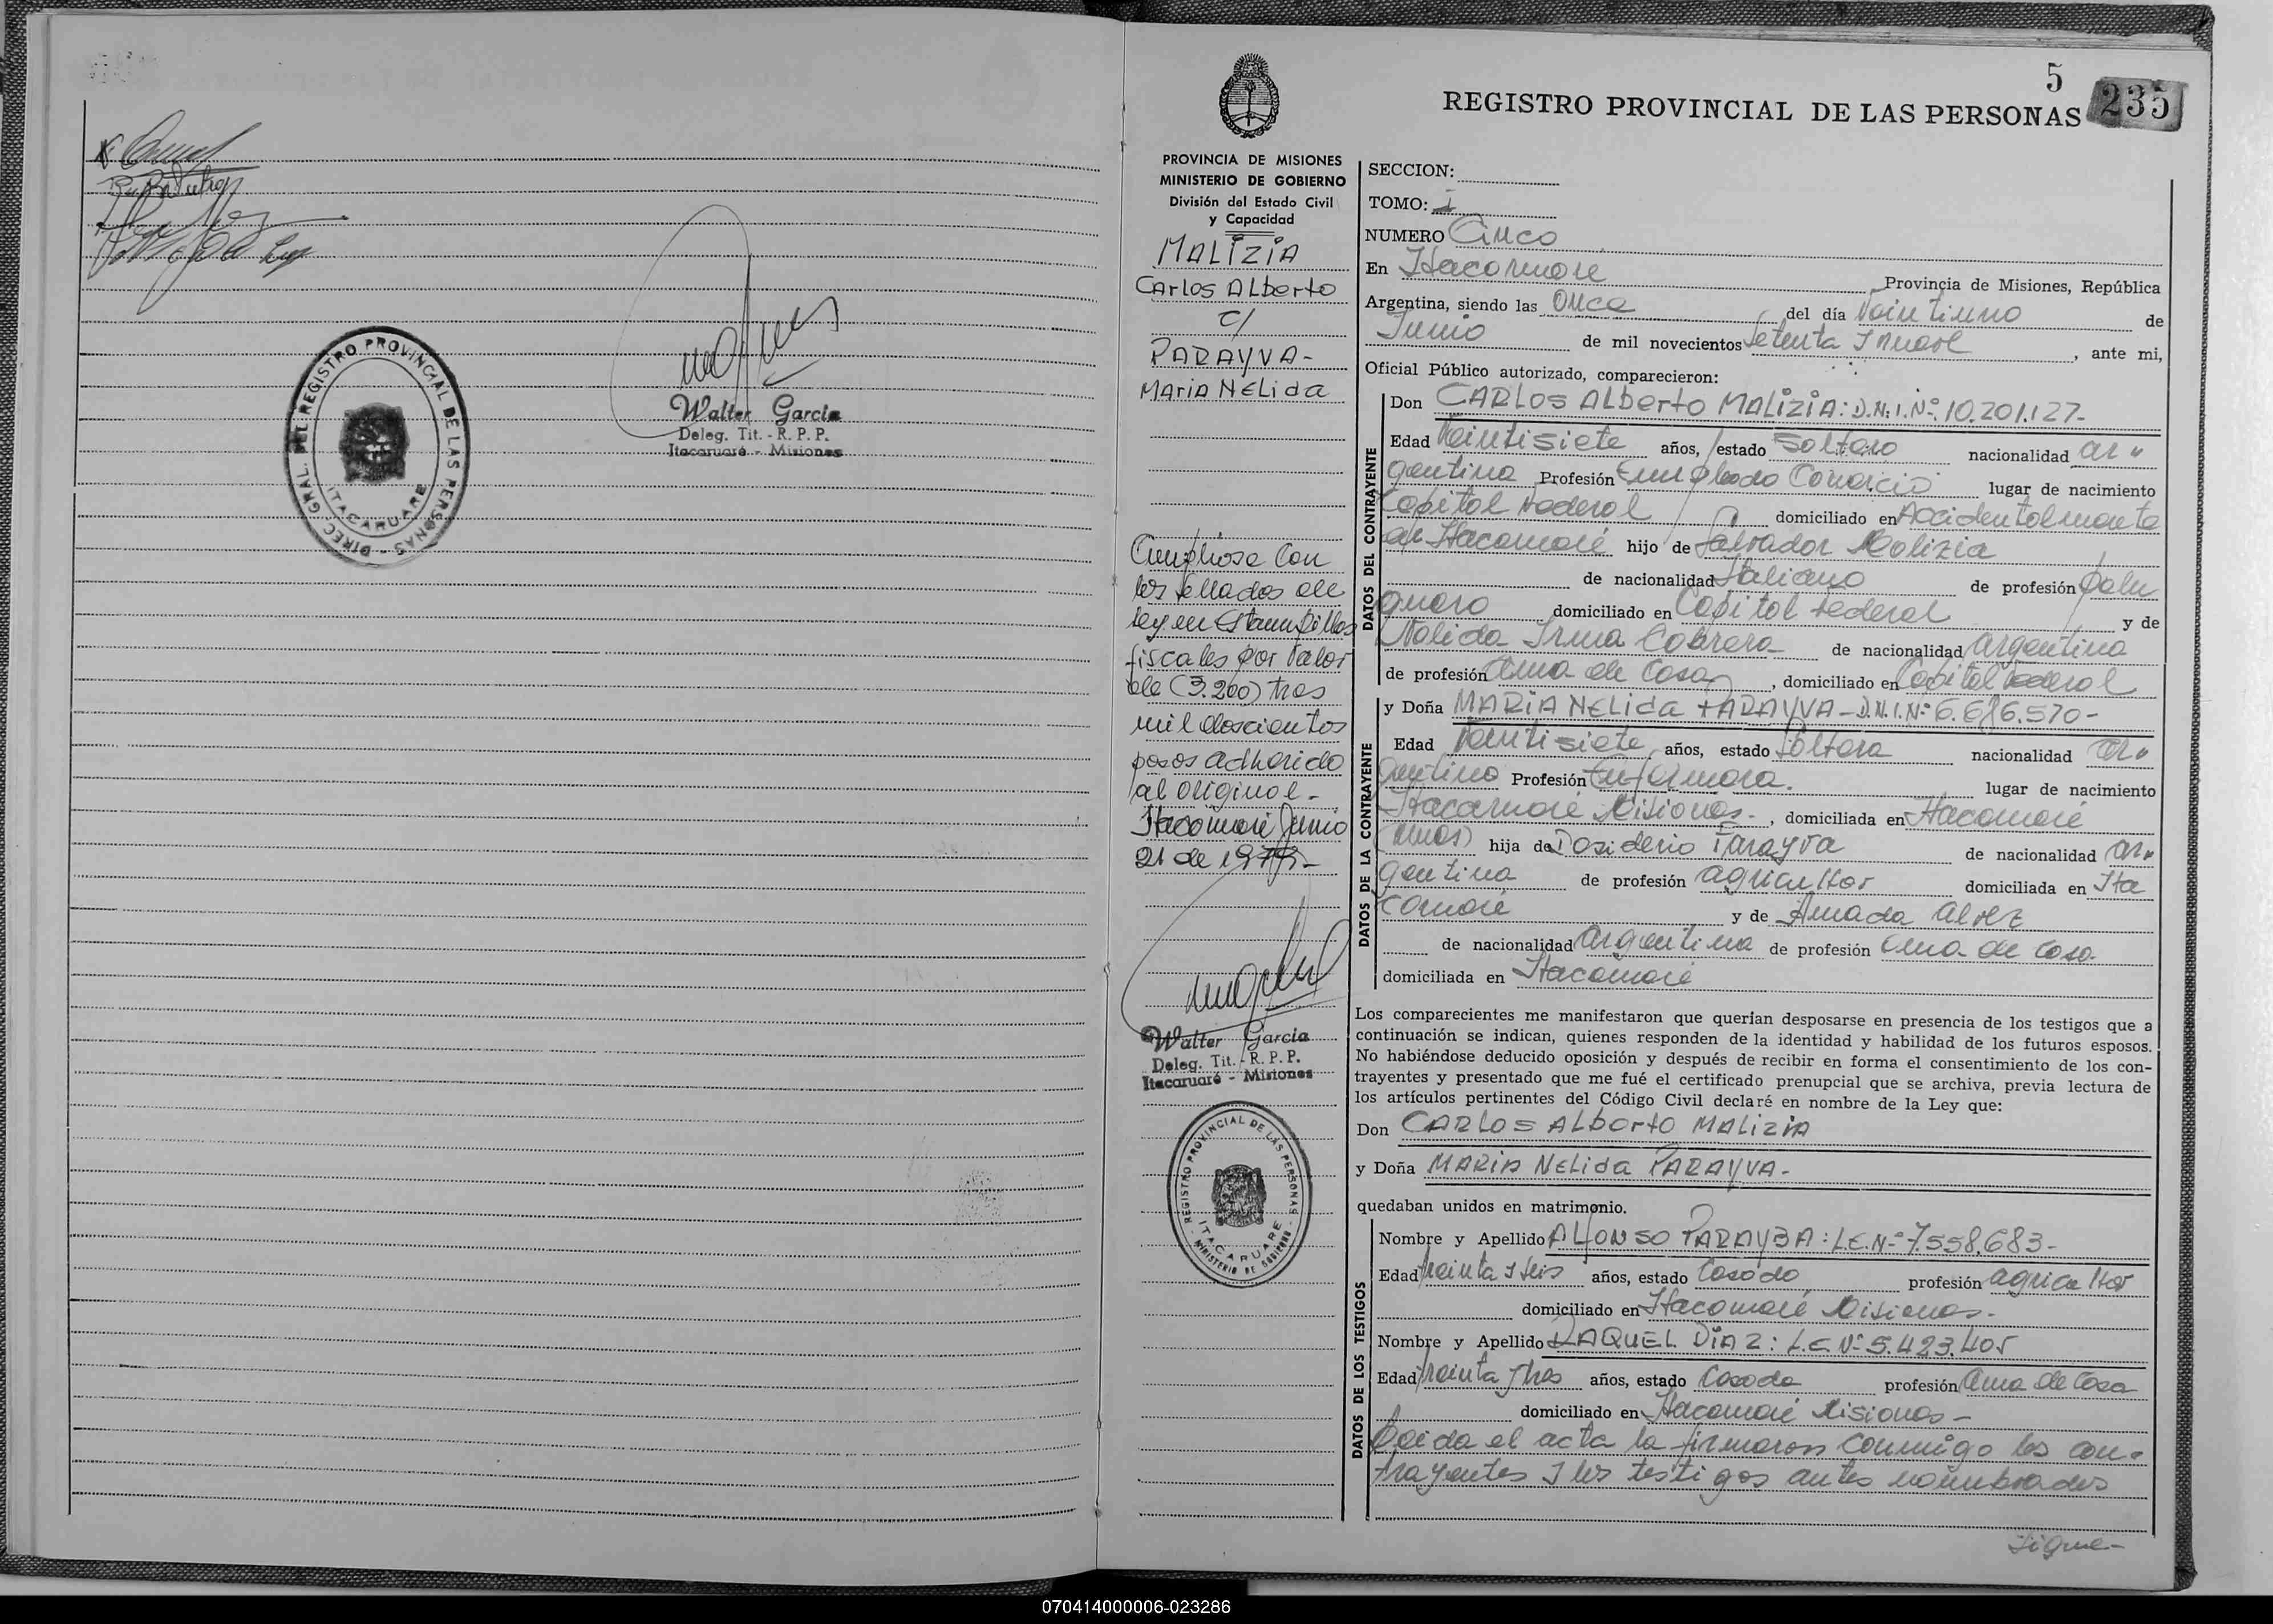 DIREC. GRAL. DEL REGISTRO PROVINCIAL DE LAS PERSONAS -
ITACARUARE
Walter Garcia
Deleg. Tit. - R. P. P.
Itacaruaré - Misiones
5
235
REGISTRO PROVINCIAL DE LAS PERSONAS
PROVINCIA DE MISIONES
MINISTERIO DE GOBIERNO
División del Estado Civil
y Capacidad
MALIZIA
Carlos Alberto
c/
PARAYVA-
Maria Nelida
Cumpliose con
los sellados de
ley en Estampillas
fiscales por valor
de (3.200) tres
mil doscientos
pesos adherido
al original-
Itacaruaré Junio
21 de 1979-
Walter Garcia
Deleg. Tit. - R. P. P.
Itacaruaré - Misiones
REGISTRO PROVINCIAL DE LAS PERSONAS -
ITACARUARE
MINISTERIO DE GOBIERNO
SECCION:
TOMO: I
NUMERO Cinco
En Itacaruare Provincia de Misiones, República
Argentina, siendo las Once del día Veintiuno de
Junio de mil novecientos Setenta y nueve, ante mi,
Oficial Público autorizado, comparecieron:
DATOS DEL CONTRAYENTE
Don CARLOS Alberto MALIZIA: D.N.I.Nº 10.201.127-
Edad Veintisiete años, estado Soltero nacionalidad ar"
gentina Profesión Empleado Comercio lugar de nacimiento
Capital Federal domiciliado en Accidentalmente
en Itacaruaré hijo de Salvador Malizia
de nacionalidad Italiano de profesión pelu
quero domiciliado en Capital Federal y de
Nelida Irma Cabrera de nacionalidad Argentina
de profesión ama de Casa, domiciliado en Capital Federal
DATOS DE LA CONTRAYENTE
y Doña MARIA NELIDA PARAYVA-D.N.I.Nº 6.686.570-
Edad Veintisiete años, estado Soltera nacionalidad ar"
gentina Profesión Enfermera. lugar de nacimiento
Itacaruaré Misiones-, domiciliada en Itacaruaré
(Mnes) hija de Desiderio Parayva de nacionalidad ar"
gentina de profesión agricultor domiciliada en Ita
caruaré y de Amada Alvez
de nacionalidad argentina de profesión ama de casa
domiciliada en Itacaruaré
Los comparecientes me manifestaron que querían desposarse en presencia de los testigos que a
continuación se indican, quienes responden de la identidad y habilidad de los futuros esposos.
No habiéndose deducido oposición y después de recibir en forma el consentimiento de los con-
trayentes y presentado que me fué el certificado prenupcial que se archiva, previa lectura de
los artículos pertinentes del Código Civil declaré en nombre de la Ley que:
Don CARLOS Alberto MALIZIA
y Doña MARIA NELIDA PARAYVA-
quedaban unidos en matrimonio.
DATOS DE LOS TESTIGOS
Nombre y Apellido ALFONSO PARAYBA: L.E.Nº 7.558.683-
Edad treinta y seis años, estado Casado profesión agricultor
domiciliado en Itacaruaré Misiones-
Nombre y Apellido RAQUEL DIAZ: L.C.Nº 5.423.405
Edad treinta y tres años, estado Casada profesión Ama de Casa
domiciliado en Itacaruaré Misiones-
Leida el acta la firmaron conmigo los con-
trayentes y los testigos antes nombrados
Sigue-
070414000006-023286